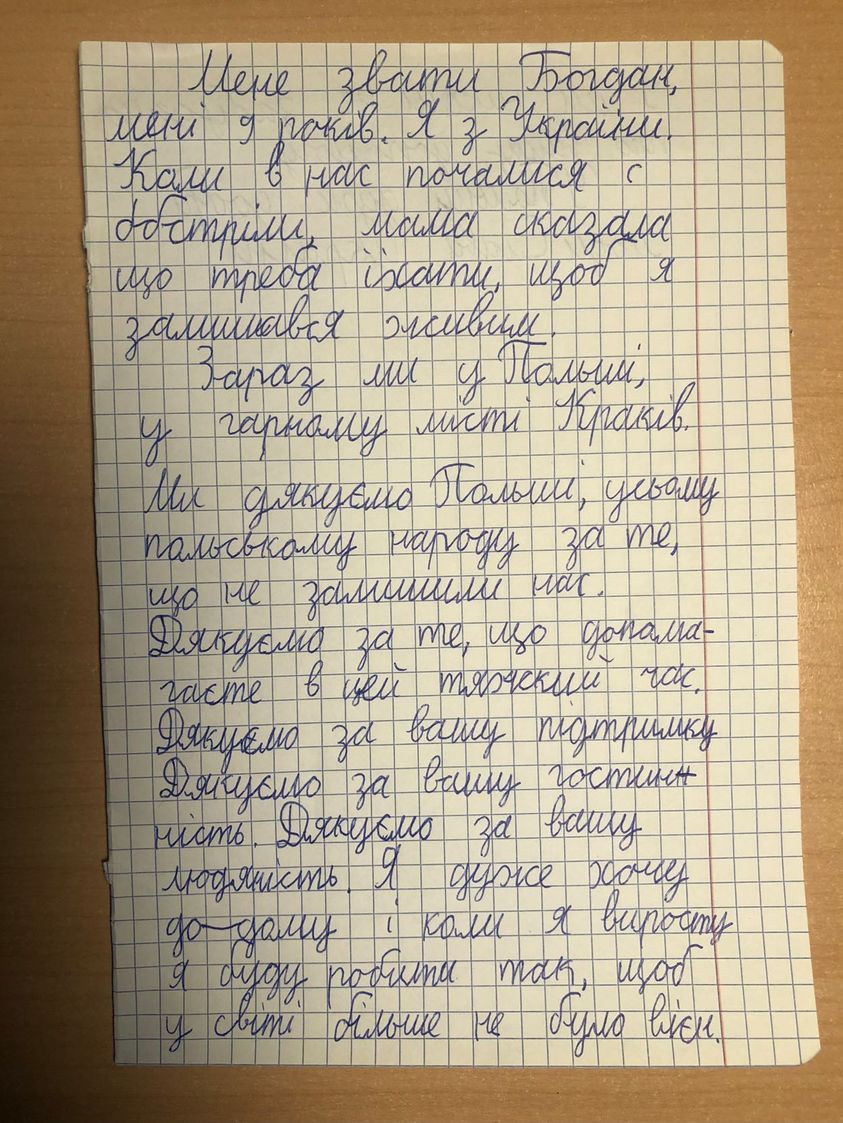 Мене звати Богдан,
мені 9 років. Я з України.
Коли в нас почалися с
обстріли, мама сказала
що треба їхати, щоб я
залишався живим.
Зараз ми у Польші,
у гарному місті Краків.
Ми дякуємо Польші, усьому
польському народу за те,
що не залишили нас.
Дякуємо за те, що допома-
гаєте в цей тяжский час.
Дякуємо за вашу підтримку
Дякуємо за вашу гостин
ність. Дякуємо за вашу
людяність. Я дуже хочу
до-дому і коли я виросту
я буду робити так, щоб
у світі більше не було вієн.